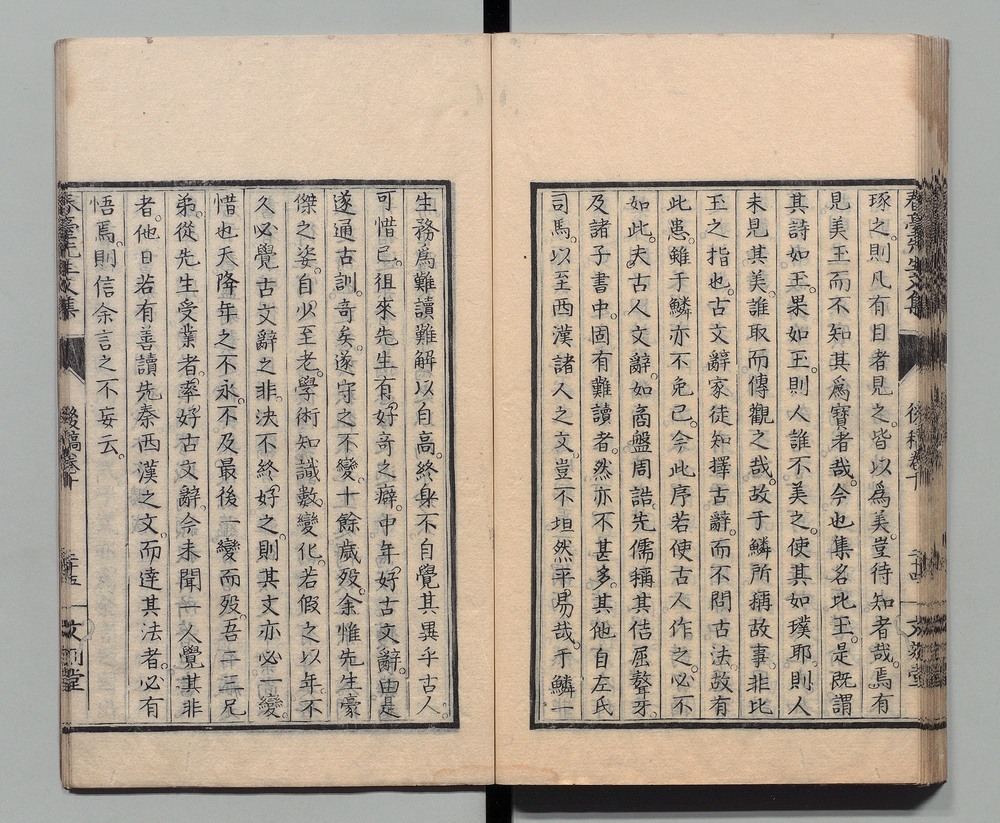 琢之則凡有目者見之皆以為美豈待知者哉焉有
見美玉而不知其為寶者哉今也集名比玉是既謂
其詩如玉果如玉則人誰不美之使其如璞耶則人
未見其美誰取而傳觀之哉故于鱗所稱故事非比
玉之指也古文辭家徒知擇古辭而不問古法故有
此患雖于鱗亦不免已今此序若使古人作之必不
如此夫古人文辭如商盤周誥先儒稱其佶屈聱牙
及諸子書中固有難讀者然亦不甚多其他自左氏
司馬以至西漢諸人之文豈不坦然平易哉于鱗一
生務為難讀難解以自高終身不自覺其異乎古人
可惜已徂來先生有好奇之癖中年好古文辭由是
遂通古訓奇矣遂守之不變十餘歲歿余惟先生豪
傑之姿自少至老學術知識數變化若假之以年不
久必覺古文辭之非決不終好之則其文亦必一變
惜也天降年之不永不及最後一變而歿吾二三兄
弟從先生受業者率好古文辭今未聞一人覺其非
者他日若有善讀先秦西漢之文而達其法者必有
悟焉則信余言之不妄云
春臺先生文集
後稿卷十